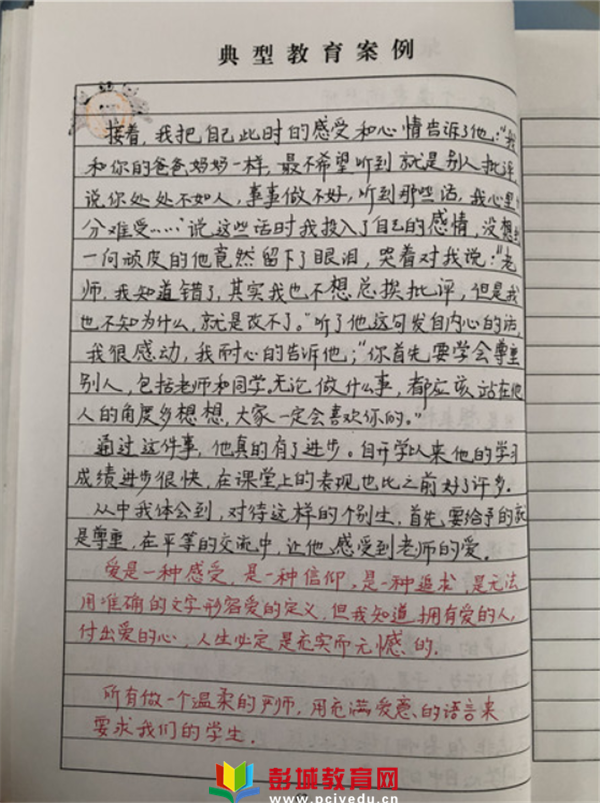 典型教育案例
接着,我把自己此时的感受和心情告诉了他:“我
和你的爸爸妈妈一样,最不希望听到就是别人批评
说你处处不如人,事事做不好,听到那些话,我心里
分难受……”说这些话时我投入了自己的感情,没想
一向顽皮的他竟然留下了眼泪,哭着对我说:“老
师,我知道错了,其实我也不想总挨批评,但是我
也不知为什么,就是改不了。”听了他这句发自内心的话,
我很感动,我耐心的告诉他;“你首先要学会尊重
别人,包括老师和同学。无论做什么事,都应该站在他
人的角度多想想,大家一定会喜欢你的。”
通过这件事,他真的有了进步。自开学以来他的学习
成绩进步很快,在课堂上的表现也比之前好了许多。
从中我体会到,对待这样的个别生,首先要给予的就
是尊重,在平等的交流中,让他感受到老师的爱。
爱是一种感受,是一种信仰,是一种追求,是无法
用准确的文字形容爱的定义,但我知道,拥有爱的人,
付出爱的心,人生必定是充实而无憾的.
所有做一个温柔的严师,用充满爱意的语言来
要求我们的学生.
彭城教育网
www.pcjyedu.com